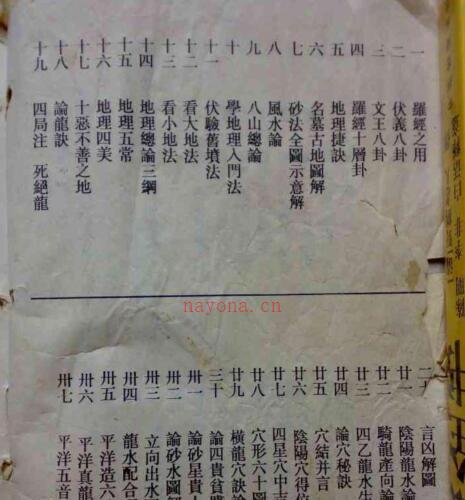 一 羅經之用
二 伏義八卦
三 文王八卦
四 羅經十層卦
五 地理捷訣
六 名墓古地圖解
七 砂法全圖示意解
八 風水論
九 八山總論
十 學地理入門法
十一 伏驗舊墳法
十二 看大地法
十三 看小地法
十四 地理總論三綱
十五 地理五常
十六 地理四美
十七 十惡不善之地
十八 論龍訣
十九 四局注 死絕龍
nayona.cn
二十 言凶解圖
廿一 陰陽龍水論
廿二 騎龍產向論
廿三 四乙龍水生
廿四 論穴秘訣
廿五 穴結并言
廿六 陰陽穴得位
廿七 四星穴中吉
廿八 穴形六十圖
廿九 橫龍穴訣論
三十 論四貴貧賤
卅一 論砂星貴人
卅二 論砂水圖解
卅三 立向出水
卅四 龍水配合
卅五 平洋造六
卅六 平洋真龍
卅七 平洋五音